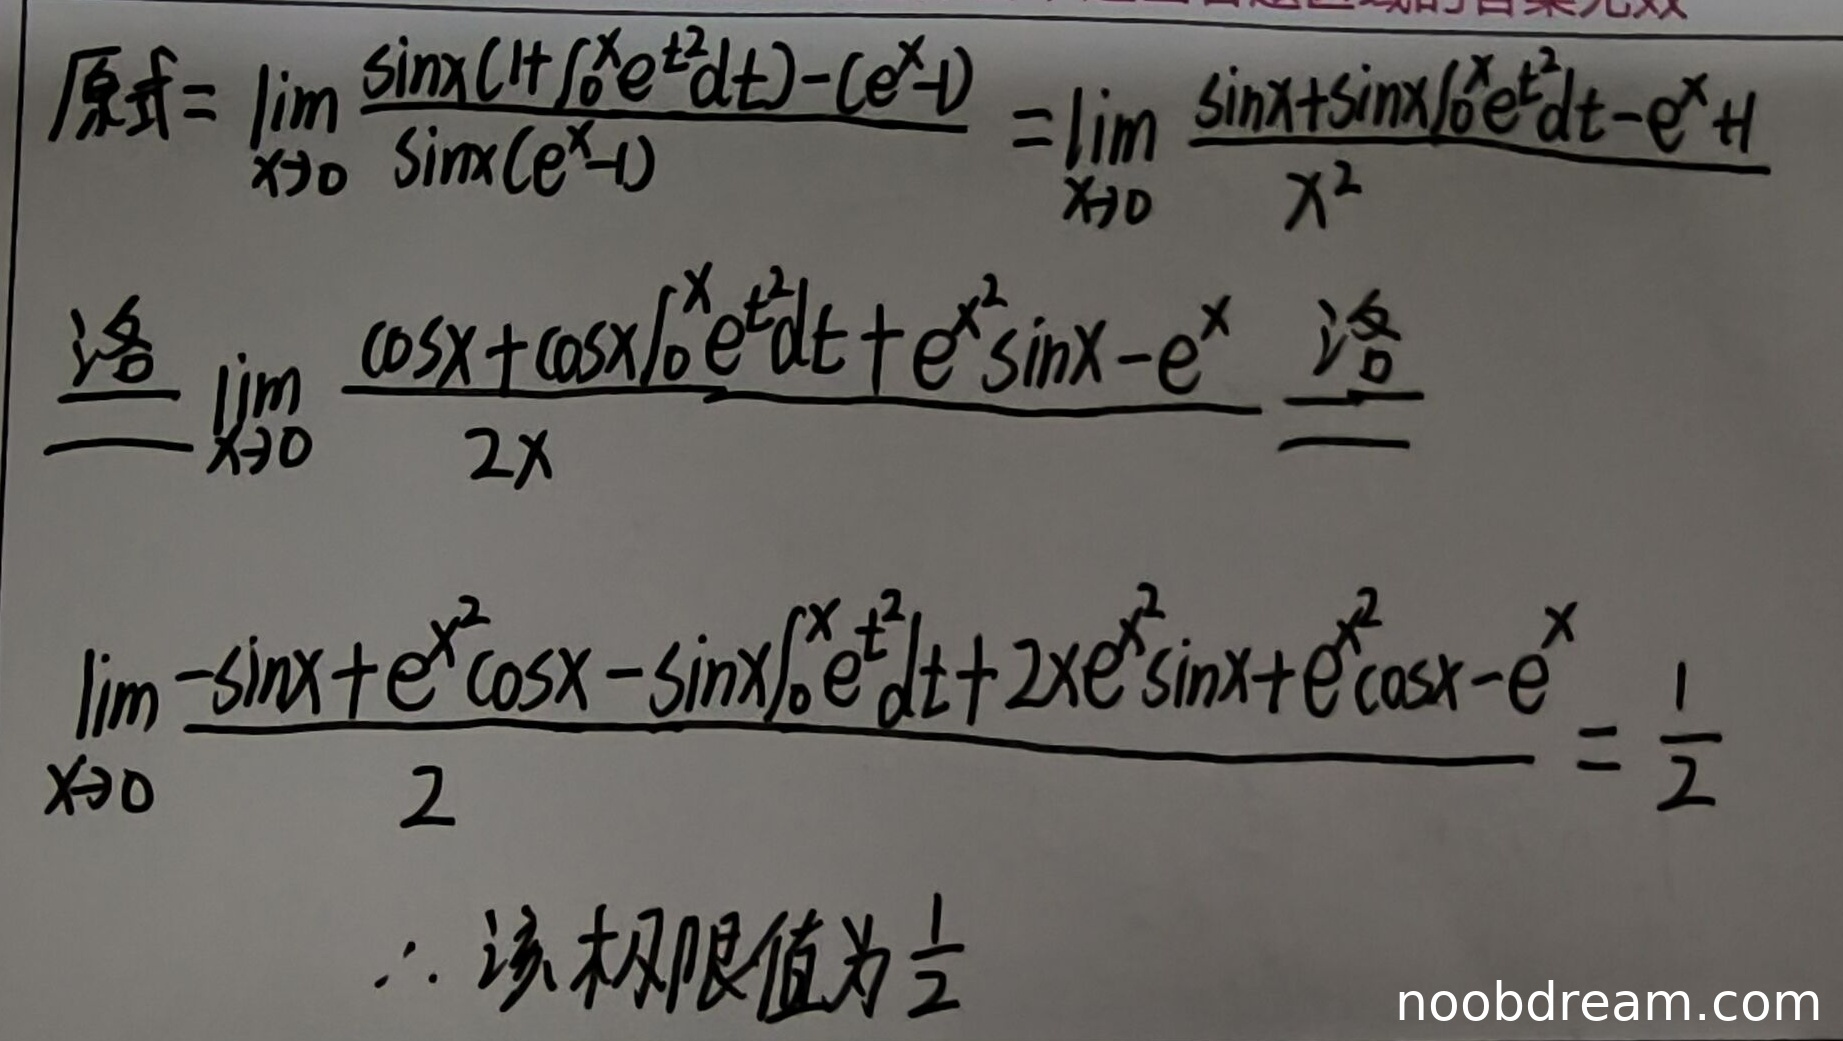 原式 = lim x→0 (sinx(1+∫₀ˣe^{t²}dt)-(eˣ-1))/(sinx(eˣ-1)) = lim x→0 (sinx+sinx∫₀ˣe^{t²}dt-eˣ+1)/x²
洛 = lim x→0 (cosx+cosx∫₀ˣe^{t²}dt+e^{x²}sinx-eˣ)/2x 洛 =
lim x→0 (-sinx+e^{x²}cosx-sinx∫₀ˣe^{t²}dt+2xe^{x²}sinx+e^{x²}cosx-eˣ)/2 = 1/2
∴ 该极限值为 1/2
noobdream.com